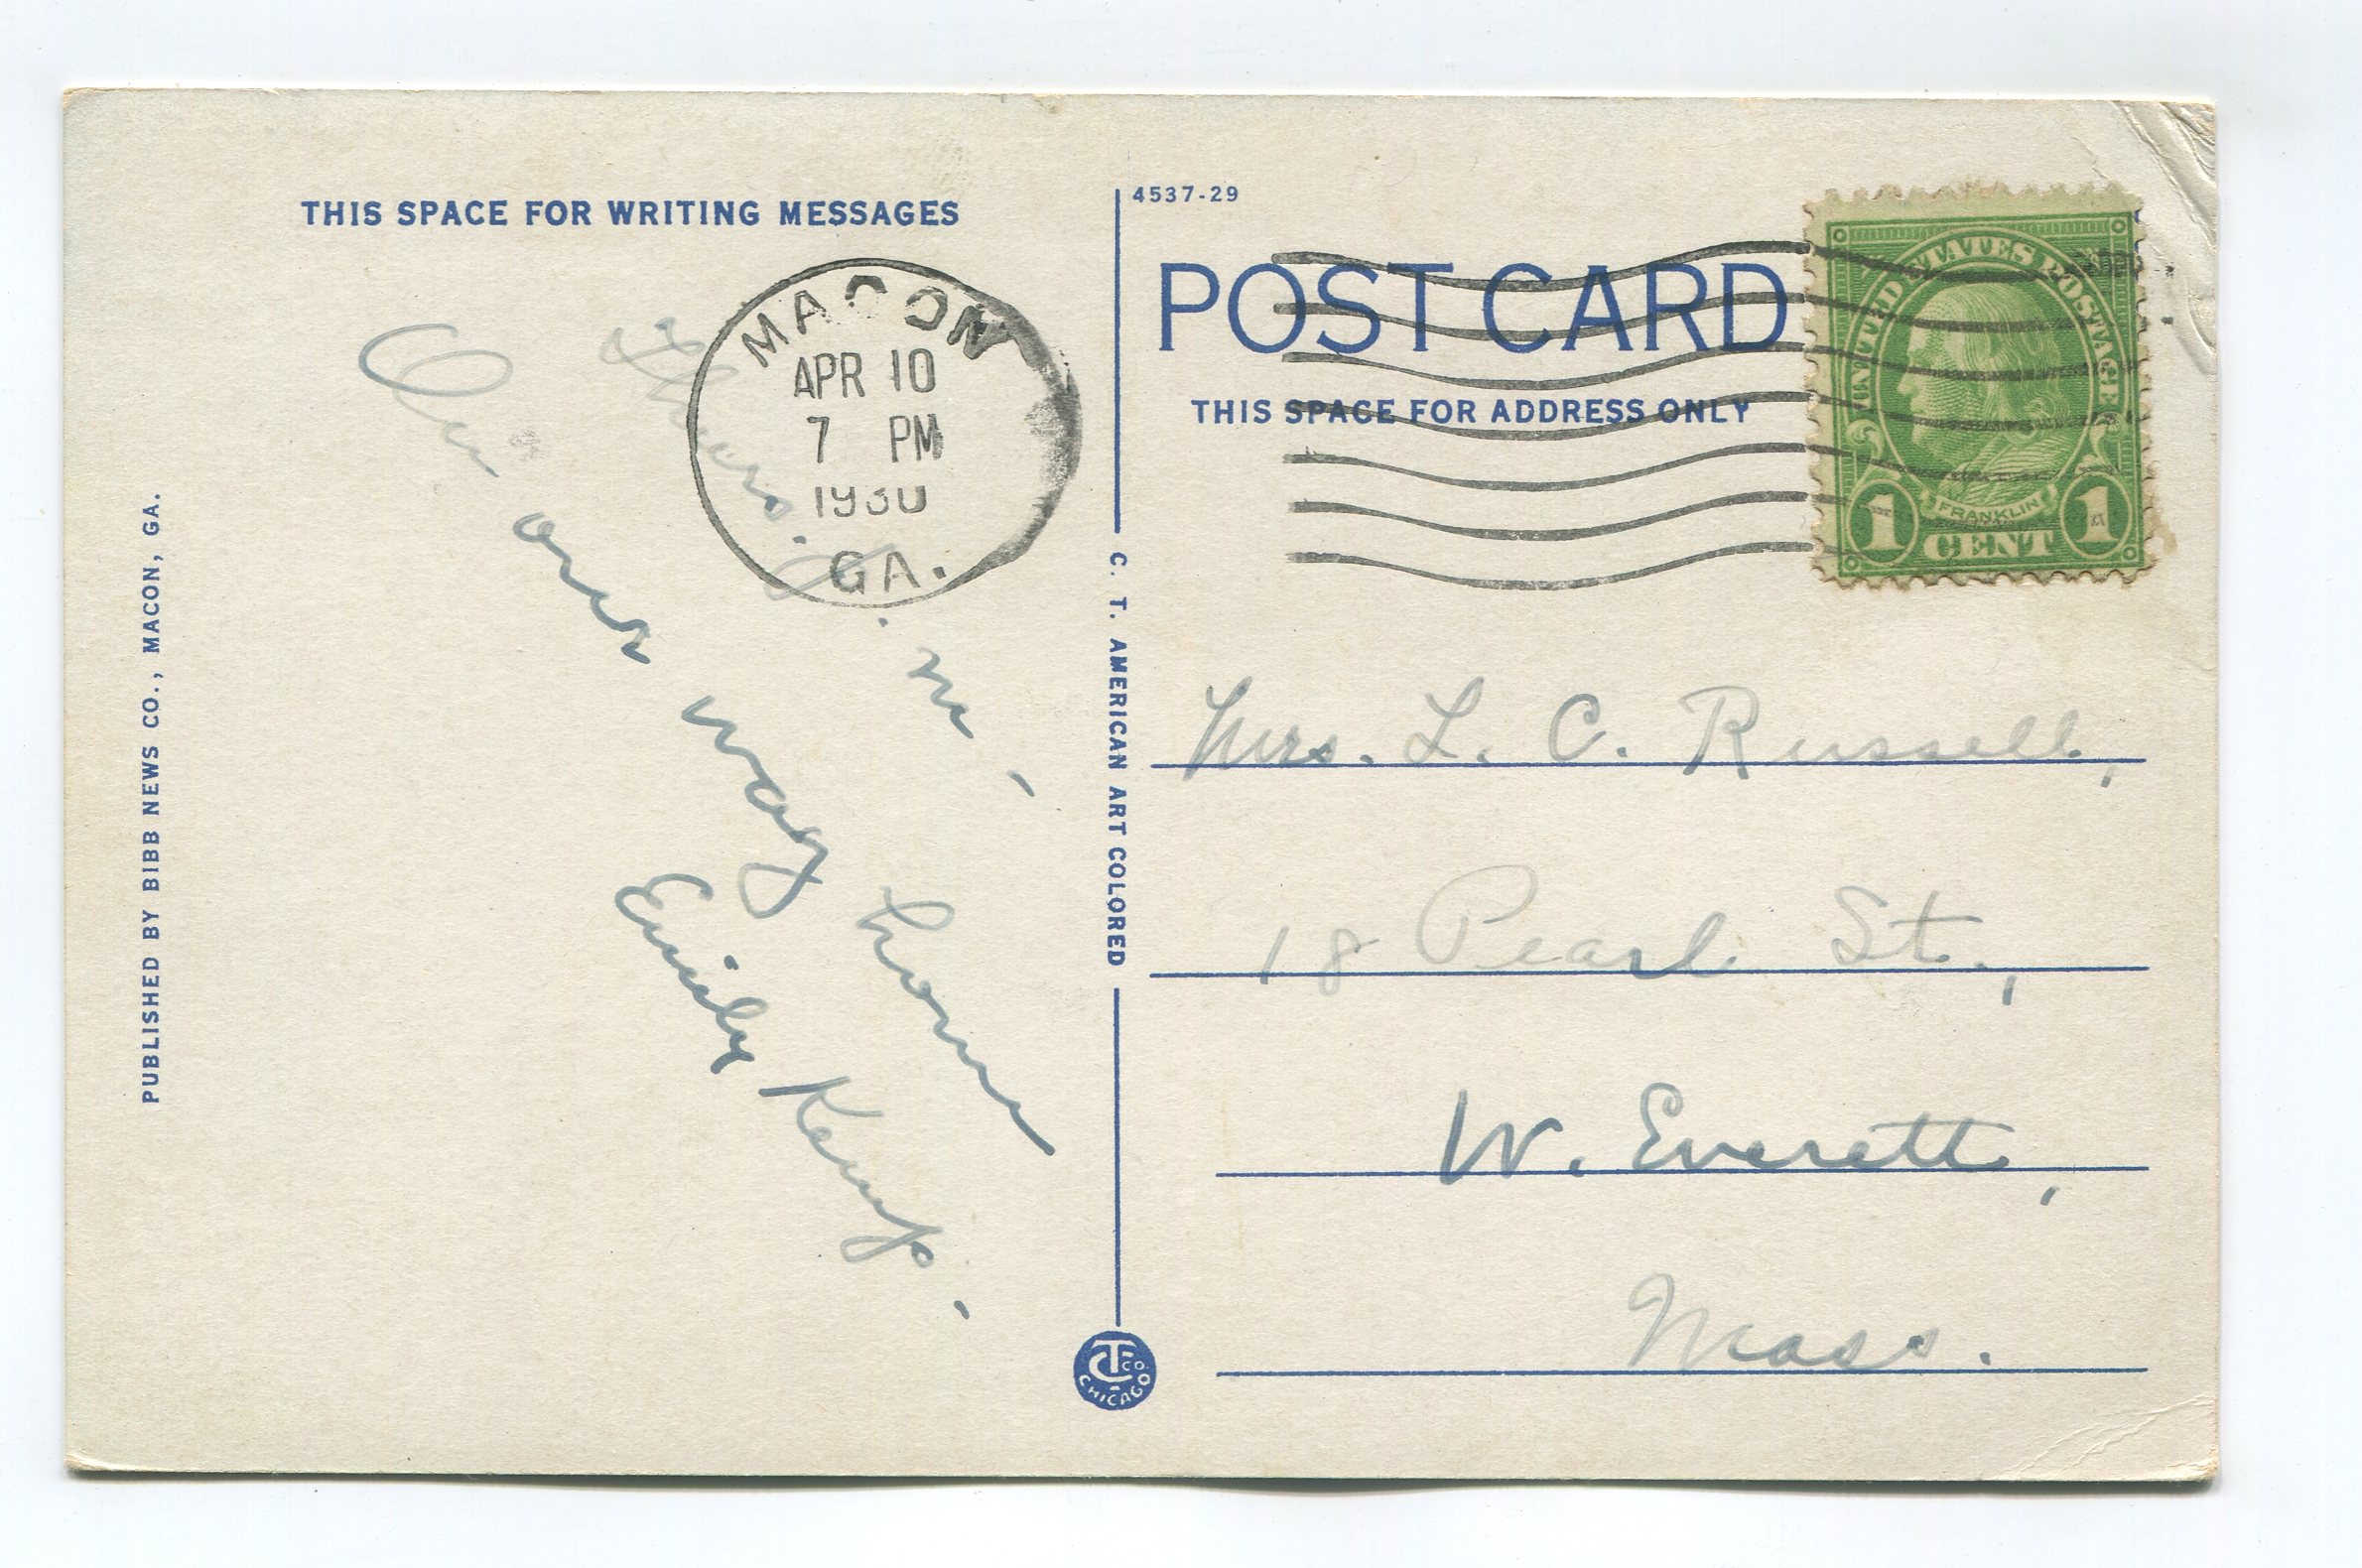 THIS SPACE FOR WRITING MESSAGES
Thurs. P. M.
On our way home
Emily Kemp.
PUBLISHED BY BIBB NEWS CO., MACON, GA.
MACON
APR 10
7 PM
1930
GA.
4537-29
POST CARD
THIS SPACE FOR ADDRESS ONLY
UNITED STATES POSTAGE
FRANKLIN
1 CENT 1
C. T. AMERICAN ART COLORED
Mrs. L. C. Russell,
18 Pearl St.,
W. Everett,
Mass.
C T CO.
CHICAGO